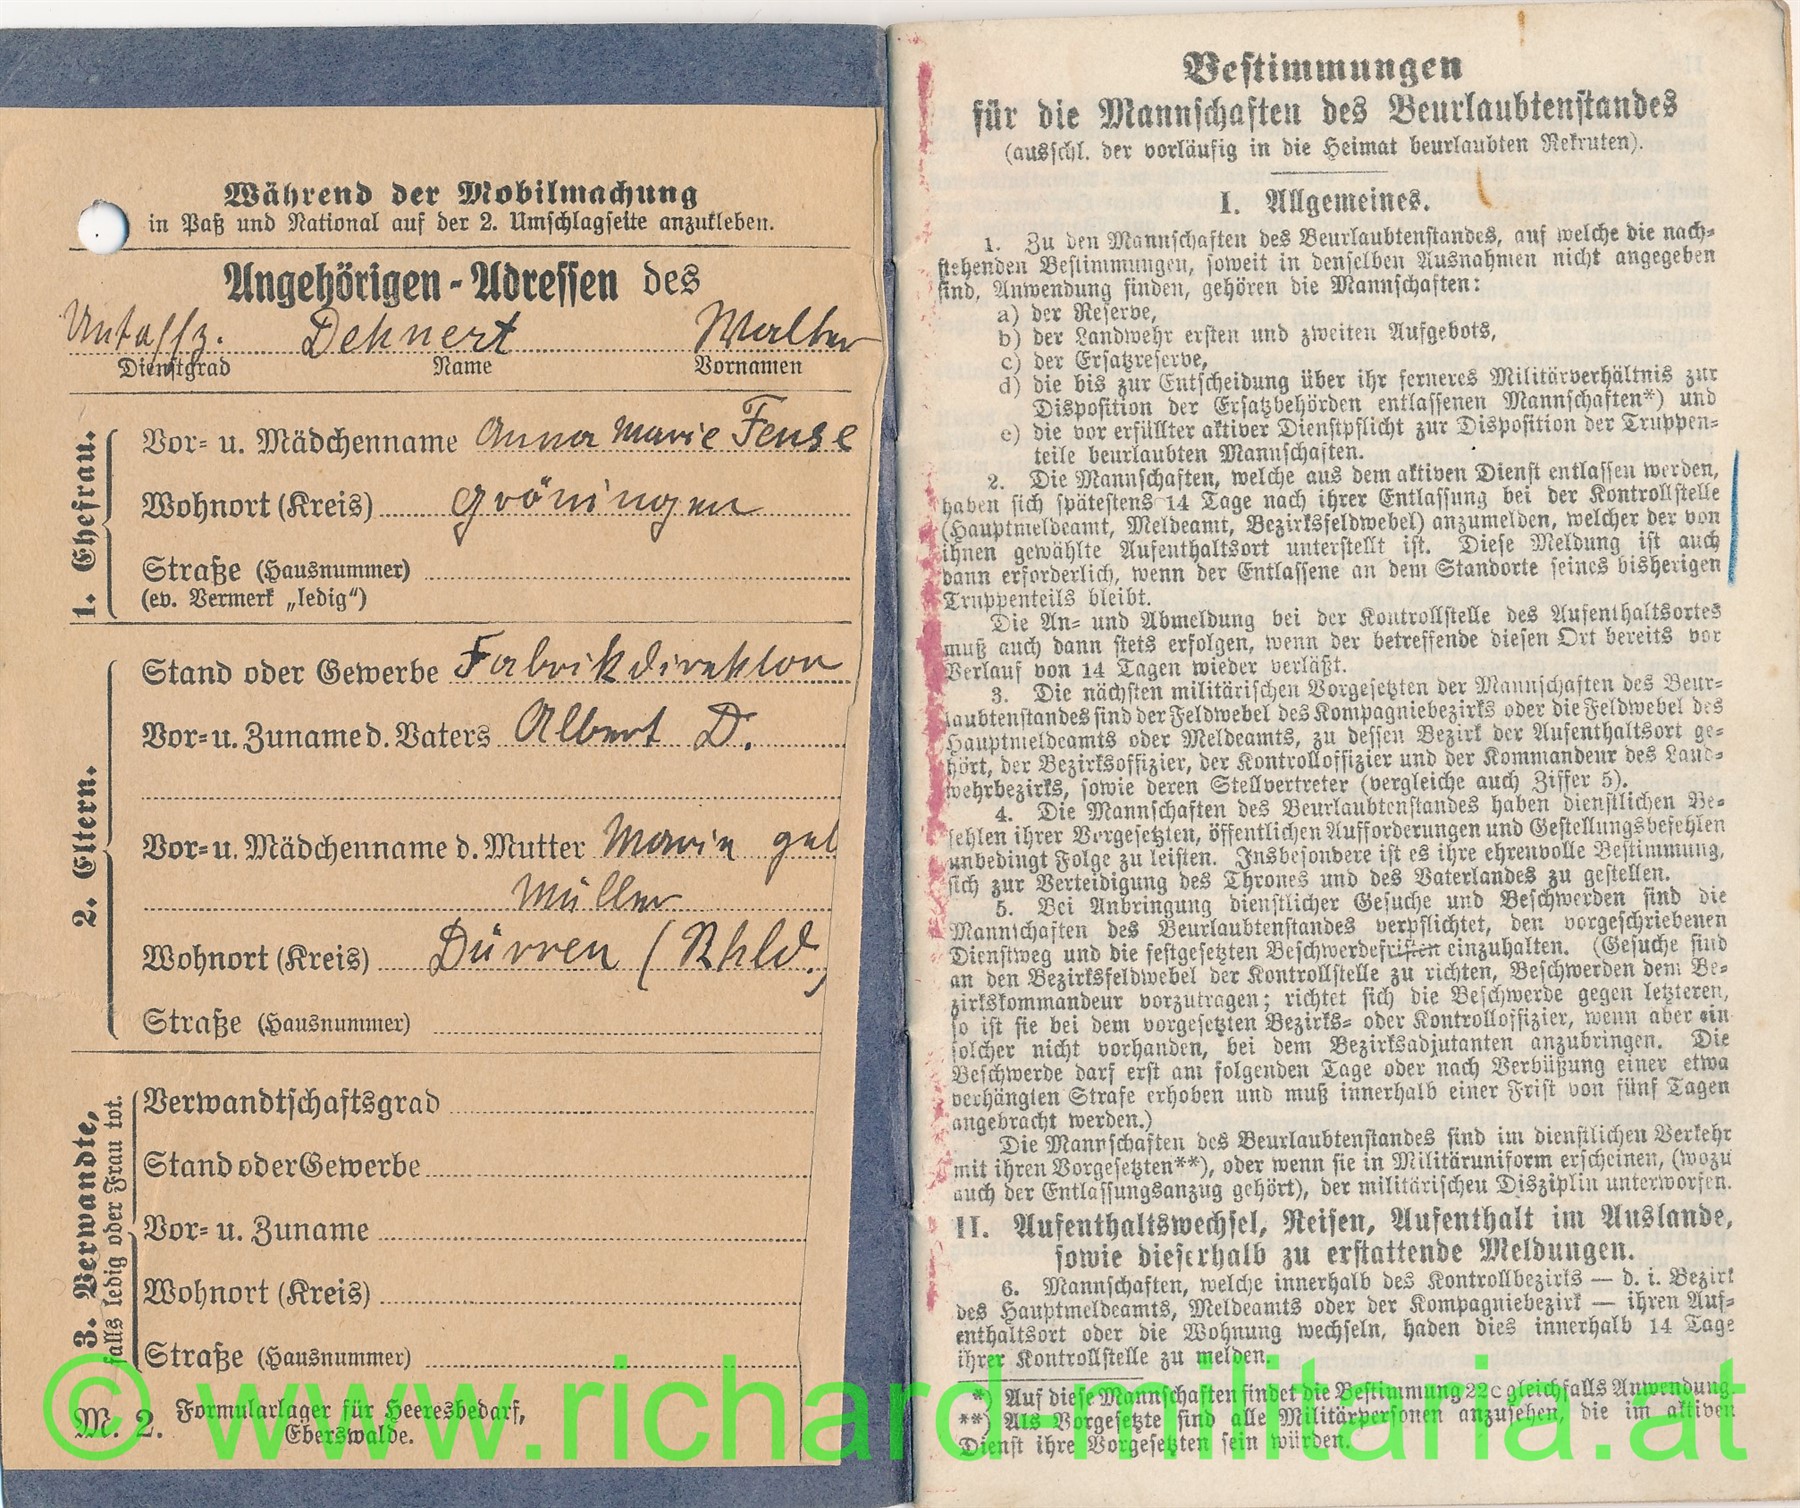 Während der Mobilmachung
in Paß und National auf der 2. Umschlagseite anzukleben.
Angehörigen-Adressen des
Untoffz. Dehnert Walter
Dienstgrad Name Vornamen
1. Ehefrau.
Vor- u. Mädchenname Anna Marie Fense
Wohnort (Kreis) Gröningen
Straße (Hausnummer)
(ev. Vermerk „ledig“)
2. Eltern.
Stand oder Gewerbe Fabrikdirektor
Vor- u. Zuname d. Vaters Albert D.
Vor- u. Mädchenname d. Mutter Marie geb
Müller
Wohnort (Kreis) Dürren (Rhld.)
Straße (Hausnummer)
3. Verwandte,
falls ledig oder Frau tot.
Verwandtschaftsgrad
Stand oder Gewerbe
Vor- u. Zuname
Wohnort (Kreis)
Straße (Hausnummer)
M. 2. Formularlager für Heeresbedarf,
Eberswalde.
Bestimmungen
für die Mannschaften des Beurlaubtenstandes
(ausschl. der vorläufig in die Heimat beurlaubten Rekruten).
I. Allgemeines.
1. Zu den Mannschaften des Beurlaubtenstandes, auf welche die nach-
stehenden Bestimmungen, soweit in denselben Ausnahmen nicht angegeben
sind, Anwendung finden, gehören die Mannschaften:
a) der Reserve,
b) der Landwehr ersten und zweiten Aufgebots,
c) der Ersatzreserve,
d) die bis zur Entscheidung über ihr ferneres Militärverhältnis zur
Disposition der Ersatzbehörden entlassenen Mannschaften*) und
e) die vor erfüllter aktiver Dienstpflicht zur Disposition der Truppen-
teile beurlaubten Mannschaften.
2. Die Mannschaften, welche aus dem aktiven Dienst entlassen werden,
haben sich spätestens 14 Tage nach ihrer Entlassung bei der Kontrollstelle
(Hauptmeldeamt, Meldeamt, Bezirksfeldwebel) anzumelden, welcher der von
ihnen gewählte Aufenthaltsort unterstellt ist. Diese Meldung ist auch
dann erforderlich, wenn der Entlassene an dem Standorte seines bisherigen
Truppenteils bleibt.
Die An- und Abmeldung bei der Kontrollstelle des Aufenthaltsortes
muß auch dann stets erfolgen, wenn der betreffende diesen Ort bereits vor
Verlauf von 14 Tagen wieder verläßt.
3. Die nächsten militärischen Vorgesetzten der Mannschaften des Beur-
laubtenstandes sind der Feldwebel des Kompagniebezirks oder die Feldwebel des
Hauptmeldeamts oder Meldeamts, zu dessen Bezirk der Aufenthaltsort ge-
hört, der Bezirksoffizier, der Kontrolloffizier und der Kommandeur des Land-
wehrbezirks, sowie deren Stellvertreter (vergleiche auch Ziffer 5).
4. Die Mannschaften des Beurlaubtenstandes haben dienstlichen Be-
fehlen ihrer Vorgesetzten, öffentlichen Aufforderungen und Gestellungsbefehlen
unbedingt Folge zu leisten. Insbesondere ist es ihre ehrenvolle Bestimmung,
sich zur Verteidigung des Thrones und des Vaterlandes zu gestellen.
5. Bei Anbringung dienstlicher Gesuche und Beschwerden sind die
Mannschaften des Beurlaubtenstandes verpflichtet, den vorgeschriebenen
Dienstweg und die festgesetzten Beschwerdefristen einzuhalten. (Gesuche sind
an den Bezirksfeldwebel der Kontrollstelle zu richten, Beschwerden dem Be-
zirkskommandeur vorzutragen; richtet sich die Beschwerde gegen letzteren,
so ist sie bei dem vorgesetzten Bezirks- oder Kontrolloffizier, wenn aber ein
solcher nicht vorhanden, bei dem Bezirksadjutanten anzubringen. Die
Beschwerde darf erst am folgenden Tage oder nach Verbüßung einer etwa
verhängten Strafe erhoben und muß innerhalb einer Frist von fünf Tagen
angebracht werden.)
Die Mannschaften des Beurlaubtenstandes sind im dienstlichen Verkehr
mit ihren Vorgesetzten**), oder wenn sie in Militäruniform erscheinen, (wozu
auch der Entlassungsanzug gehört), der militärischen Disziplin unterworfen.
II. Aufenthaltswechsel, Reisen, Aufenthalt im Auslande,
sowie dieserhalb zu erstattende Meldungen.
6. Mannschaften, welche innerhalb des Kontrollbezirks — d. i. Bezirk
des Hauptmeldeamts, Meldeamts oder der Kompagniebezirk — ihren Auf-
enthaltsort oder die Wohnung wechseln, haden dies innerhalb 14 Tage
ihrer Kontrollstelle zu melden.
*) Auf diese Mannschaften findet die Bestimmung 22c gleichfalls Anwendung.
**) Als Vorgesetzte sind alle Militärpersonen anzusehen, die im aktiven
Dienst ihre Vorgesetzten sein würden.
© www.richard-militaria.at